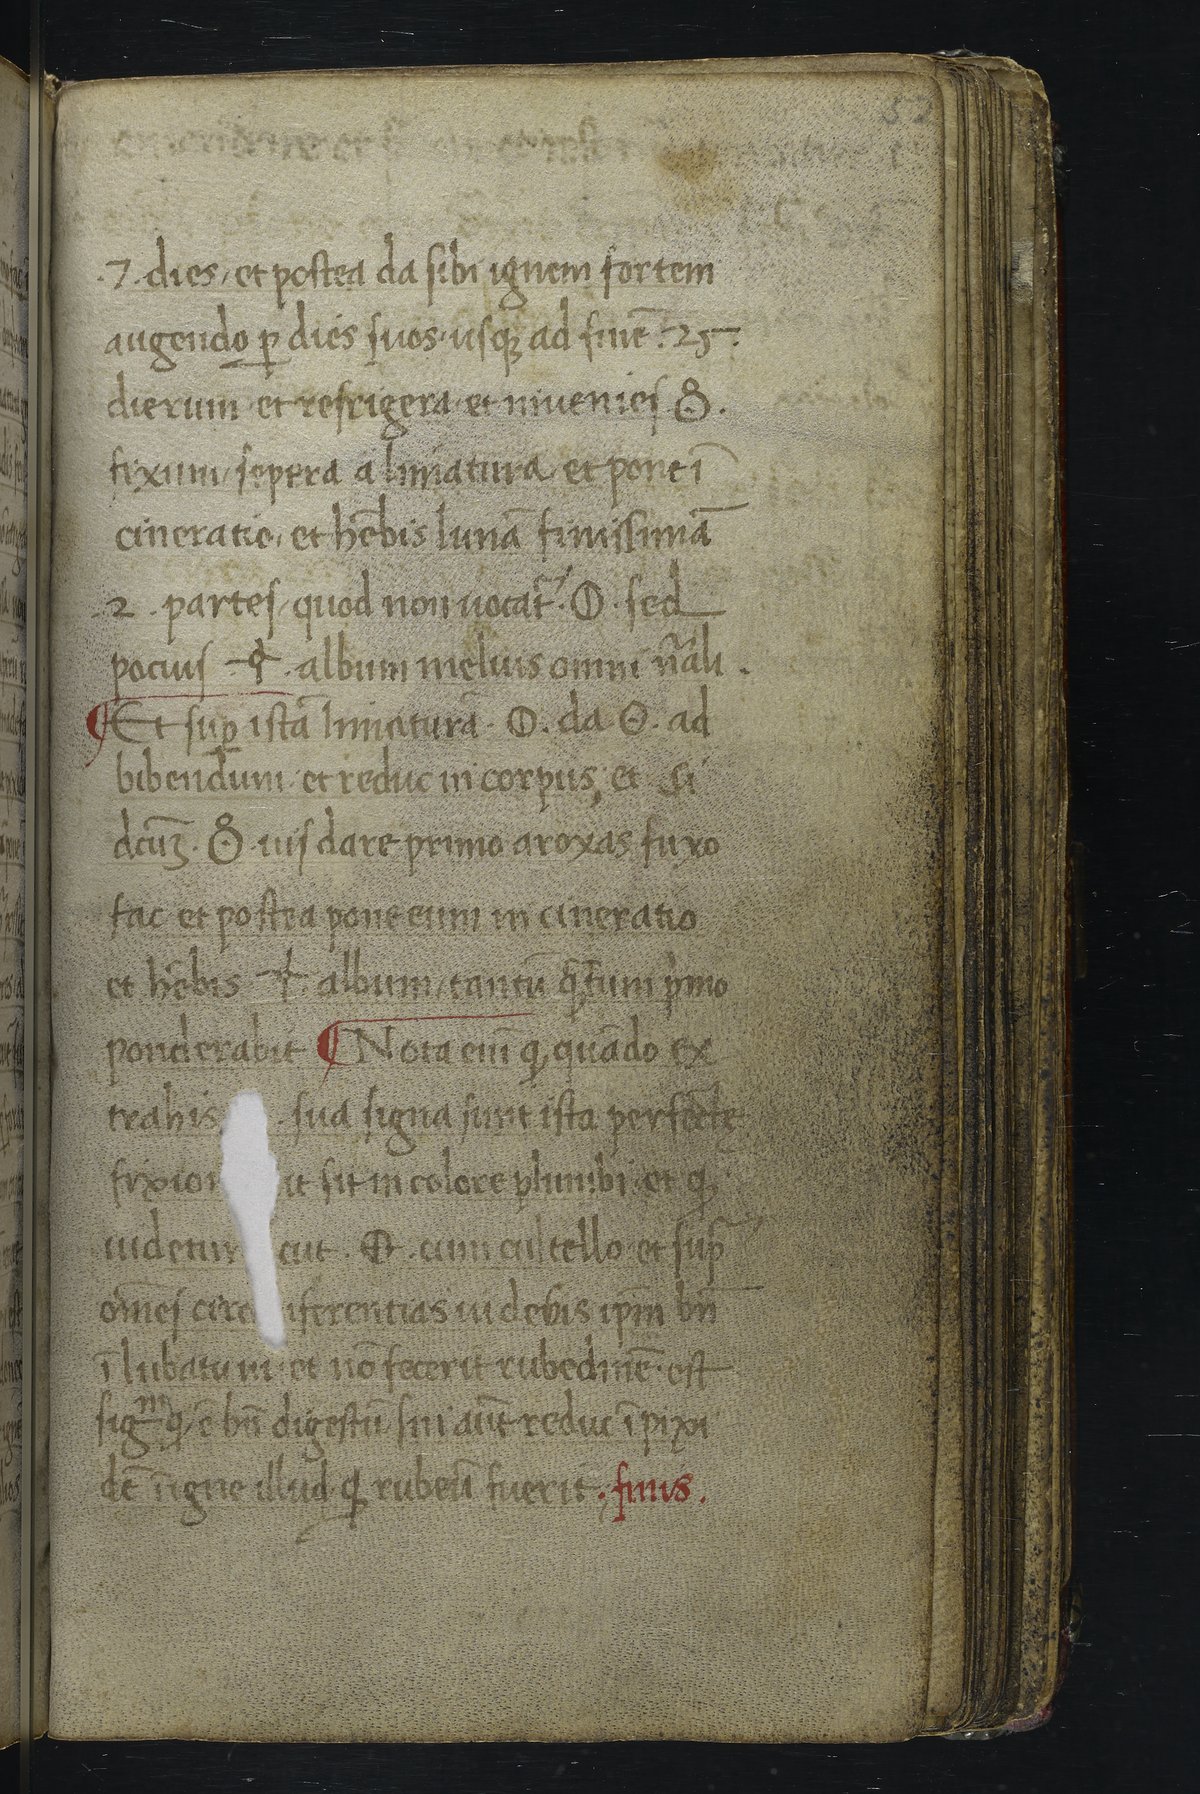 .7. dies, et postea da sibi ignem fortem
augendo ꝑ dies suos usqꝫ ad finē .25.
dierum et refrigera et invenies
fixum, sepera a limatura et pone ī
cineratio, et hēbis lunā finissimā
.2. partes, quod non vocat̃ . sed
pocius . album melius omni nr̃ali .
¶ Et suꝑ istā limaturā . da . ad
bibendum et reduc in corpus, et si
dcūꝫ . vis dare primo aroxas fuxo
fac et postea pone eum in cineratio
et hēbis . album, tantū qr̃tum pͥmo
ponderabit ¶ Nota enī ꝙ quādo ex
trahis . sua signa sunt ista perfecte
fixion it sit in colore plumbi et ꝙ
videtur cut . cum cultello et sup̃
om̄es circ ferentias videbis ip̄m bn̄
ī lubatum et nō fecerit rubedinē est
sigͫ ꝙ ē bn̄ digestū sin aūt reduc ī pixi
dē ī igne illud ꝙ rubeū fuerit . finis .